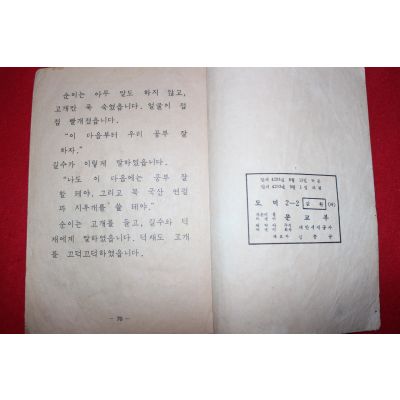 순이는 아무 말도 하지 않고,
고개만 푹 숙였읍니다. 얼굴이 점
점 빨개졌읍니다.
"이 다음부터 우리 공부 잘
하자."
길수가 이렇게 말하였읍니다.
"나도 이 다음에는 공부 잘
할 테야, 그리고 꼭 국산 연필
과 지우개를 쓸 테야."
순이는 고개를 들고, 길수와 덕
재에게 말하였읍니다. 덕재도 고개
를 끄덕끄덕하였읍니다.
- 70 -
도 덕 2-2
문 교 부